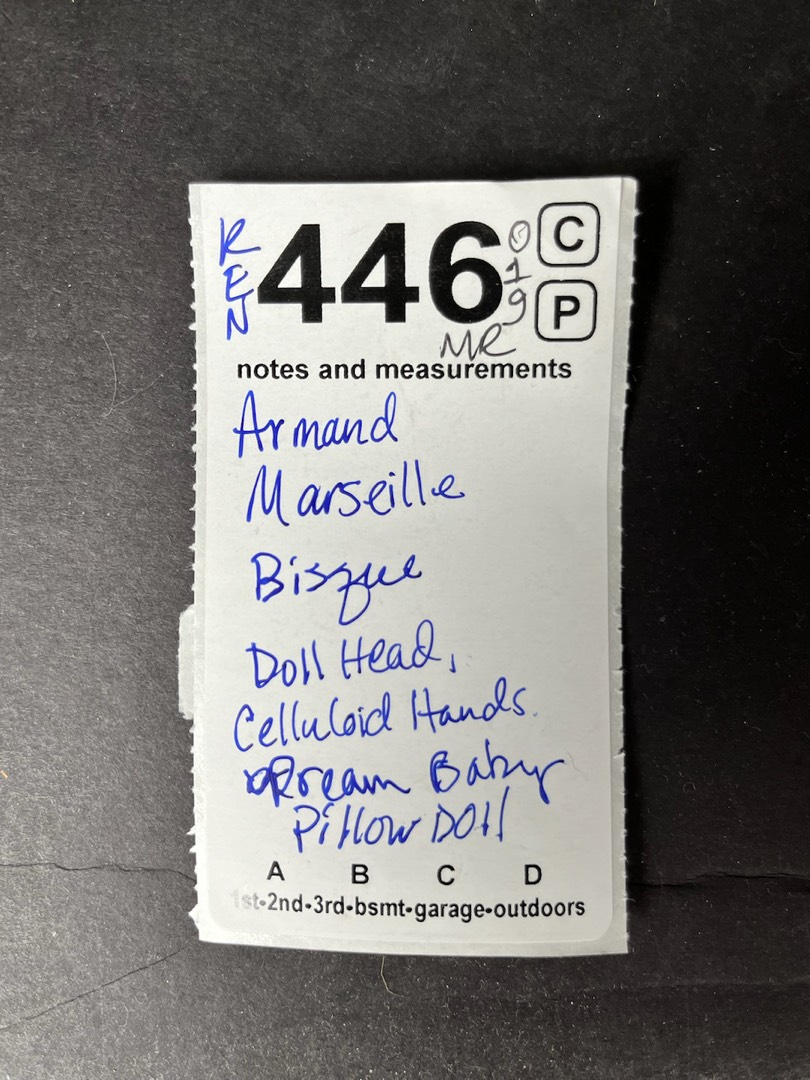 REN 446 019 C
P
MR
notes and measurements
Armand
Marseille
Bisque
Doll Head,
Celluloid Hands.
Dream Baby
Pillow Doll
A B C D
1st•2nd•3rd•bsmt•garage•outdoors